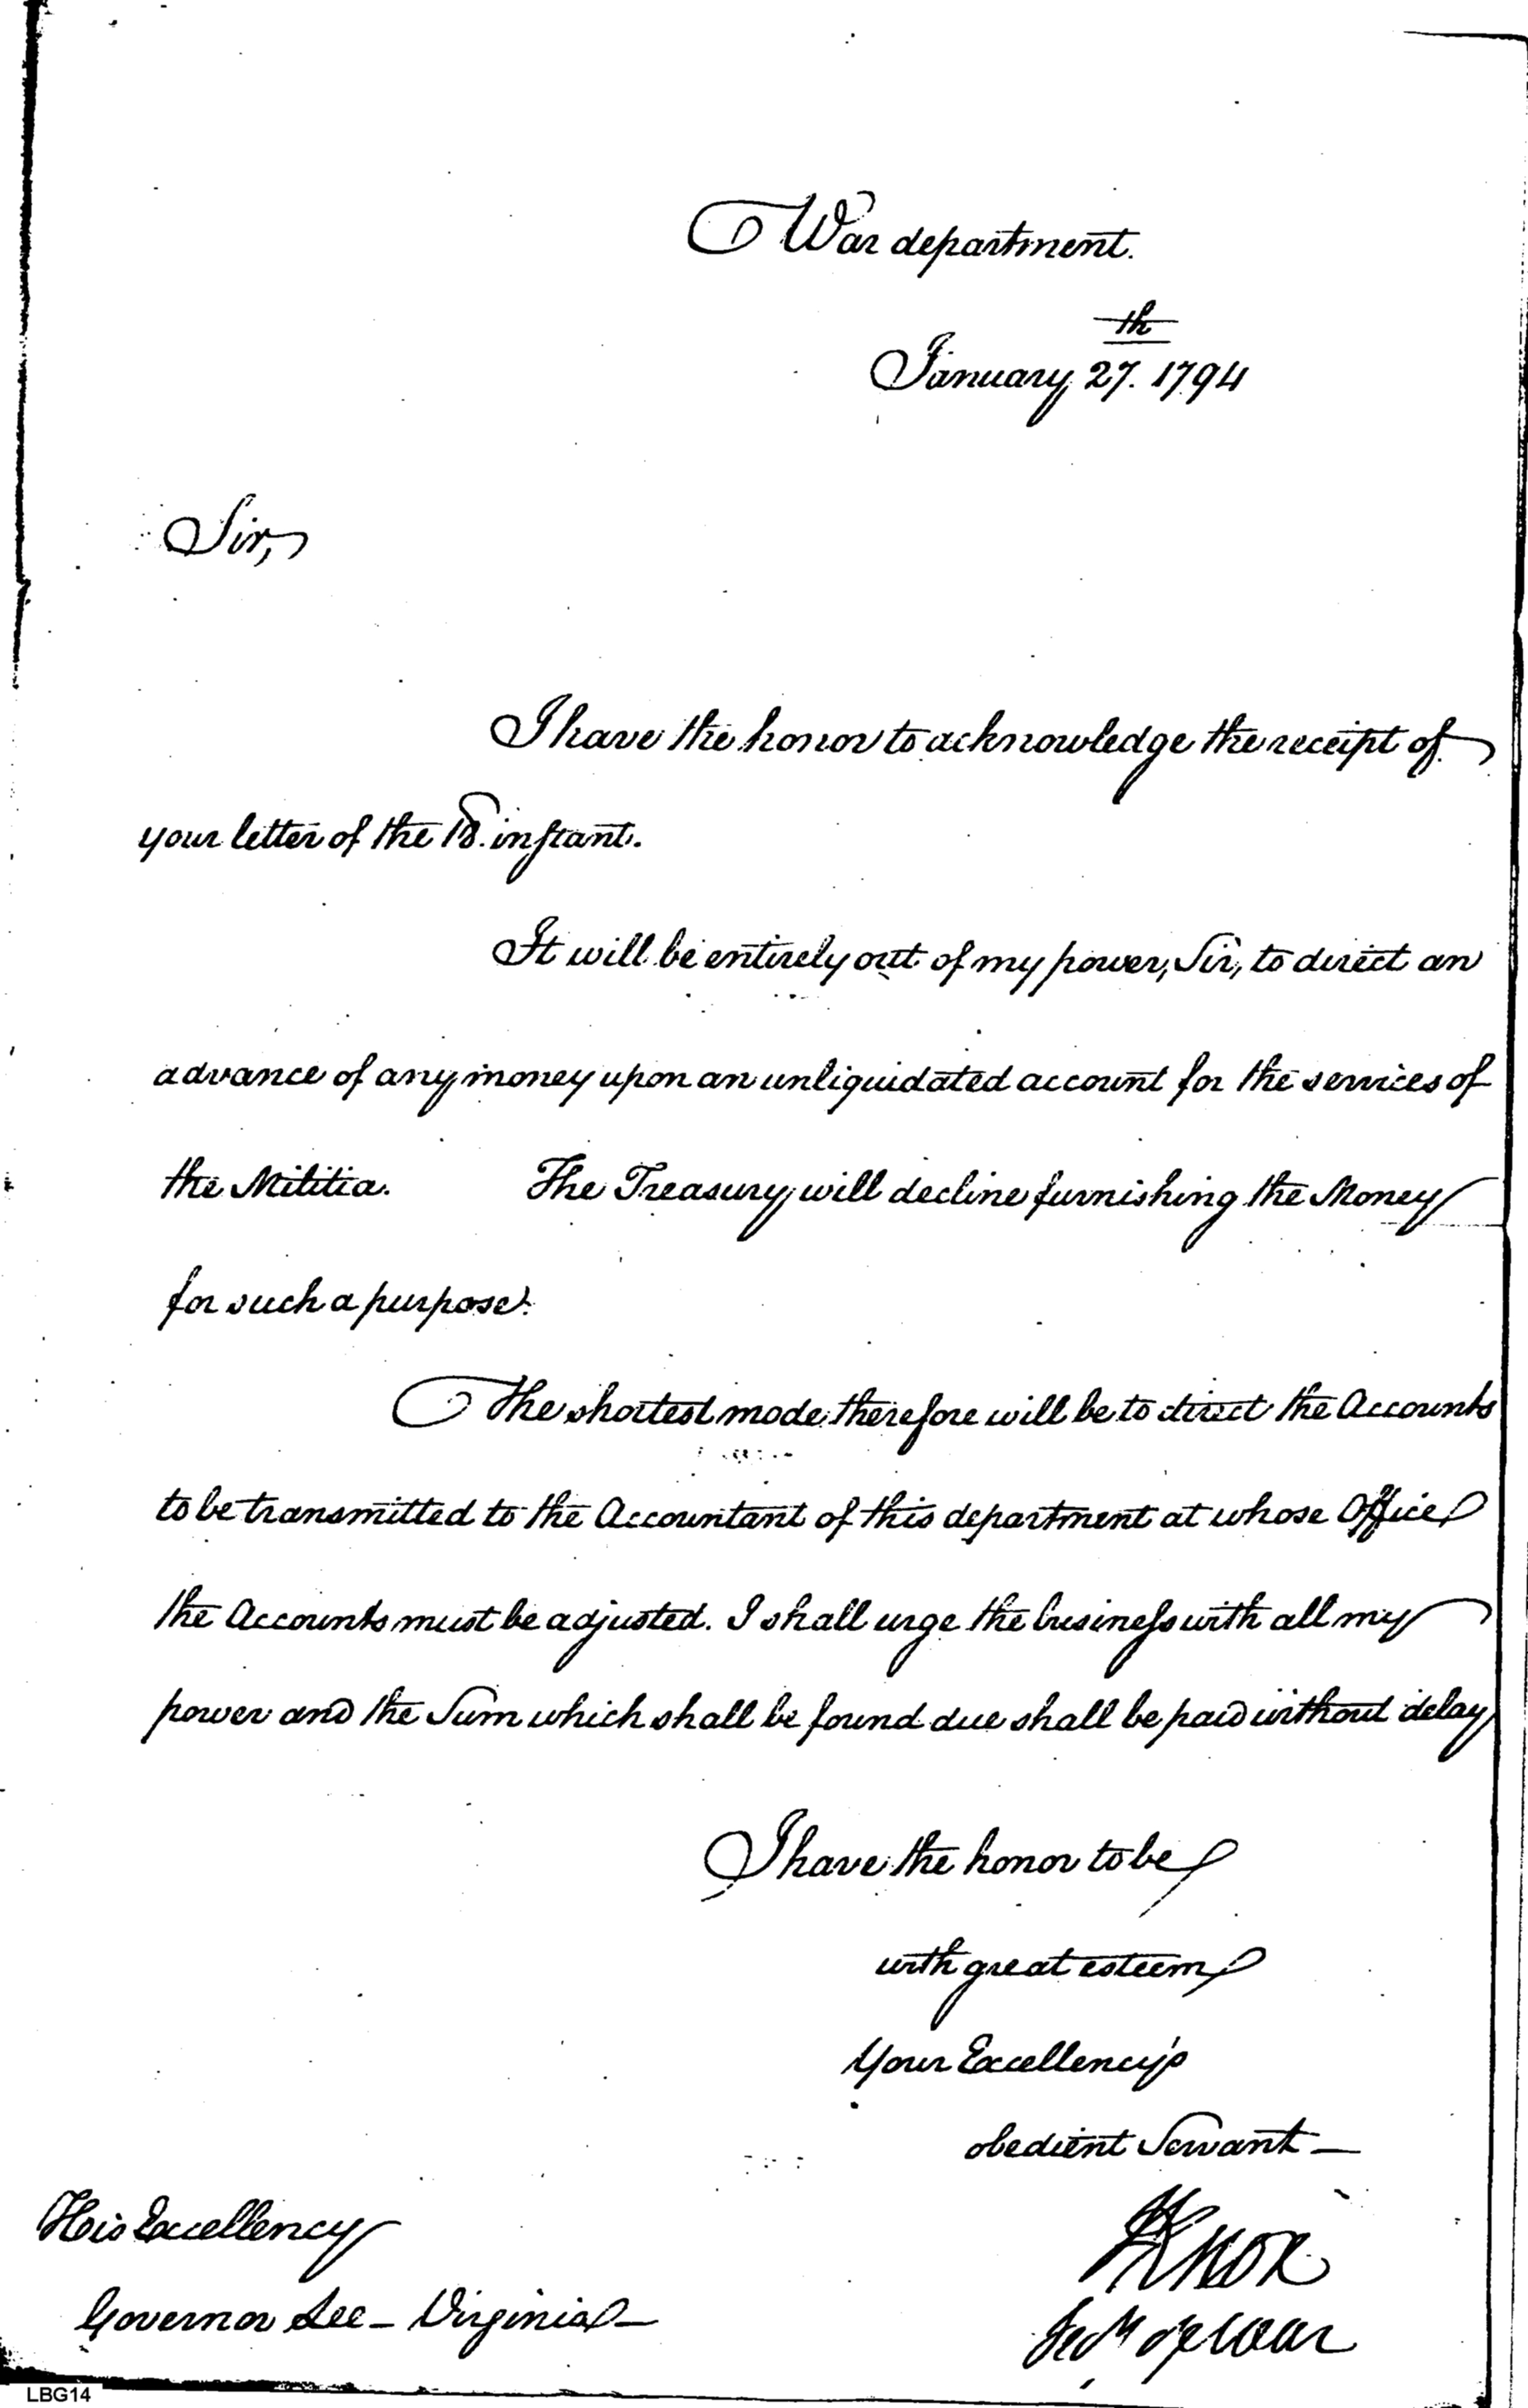 War department.
January 27.th 1794
Sir,
I have the honor to acknowledge the receipt of
your letter of the 18. instant.
It will be entirely out of my power, Sir, to direct an
advance of any money upon an unliquidated account for the services of
the Militia. The Treasury will decline furnishing the Money
for such a purpose.
The shortest mode therefore will be to direct the Accounts
to be transmitted to the Accountant of this department at whose Office
the Accounts must be adjusted. I shall urge the business with all my
power and the Sum which shall be found due shall be paid without delay
I have the honor to be
with great esteem
Your Excellency's
obedient Servant —
HKnox
Secy of War
His Excellency
Governor Lee — Virginia —
LBG14